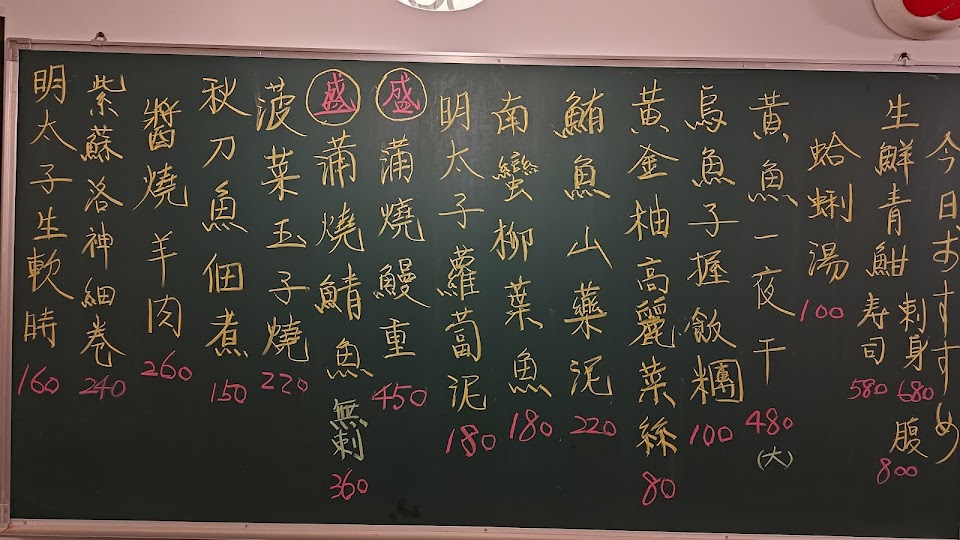 今日おすすめ
生鮮青魽
刺身 680
腹 800
寿司 580
蛤蜊湯 100
黃魚一夜干 480 (大)
烏魚子握飯糰 100
黃金柚高麗菜絲 80
鮪魚山藥泥 220
南蠻柳葉魚 180
明太子蘿蔔泥 180
盛 蒲燒鰻重 450
盛 蒲燒鯖魚 無刺 360
菠菜玉子燒 220
秋刀魚佃煮 150
醬燒羊肉 260
紫蘇洛神細卷 240
明太子生軟時 160